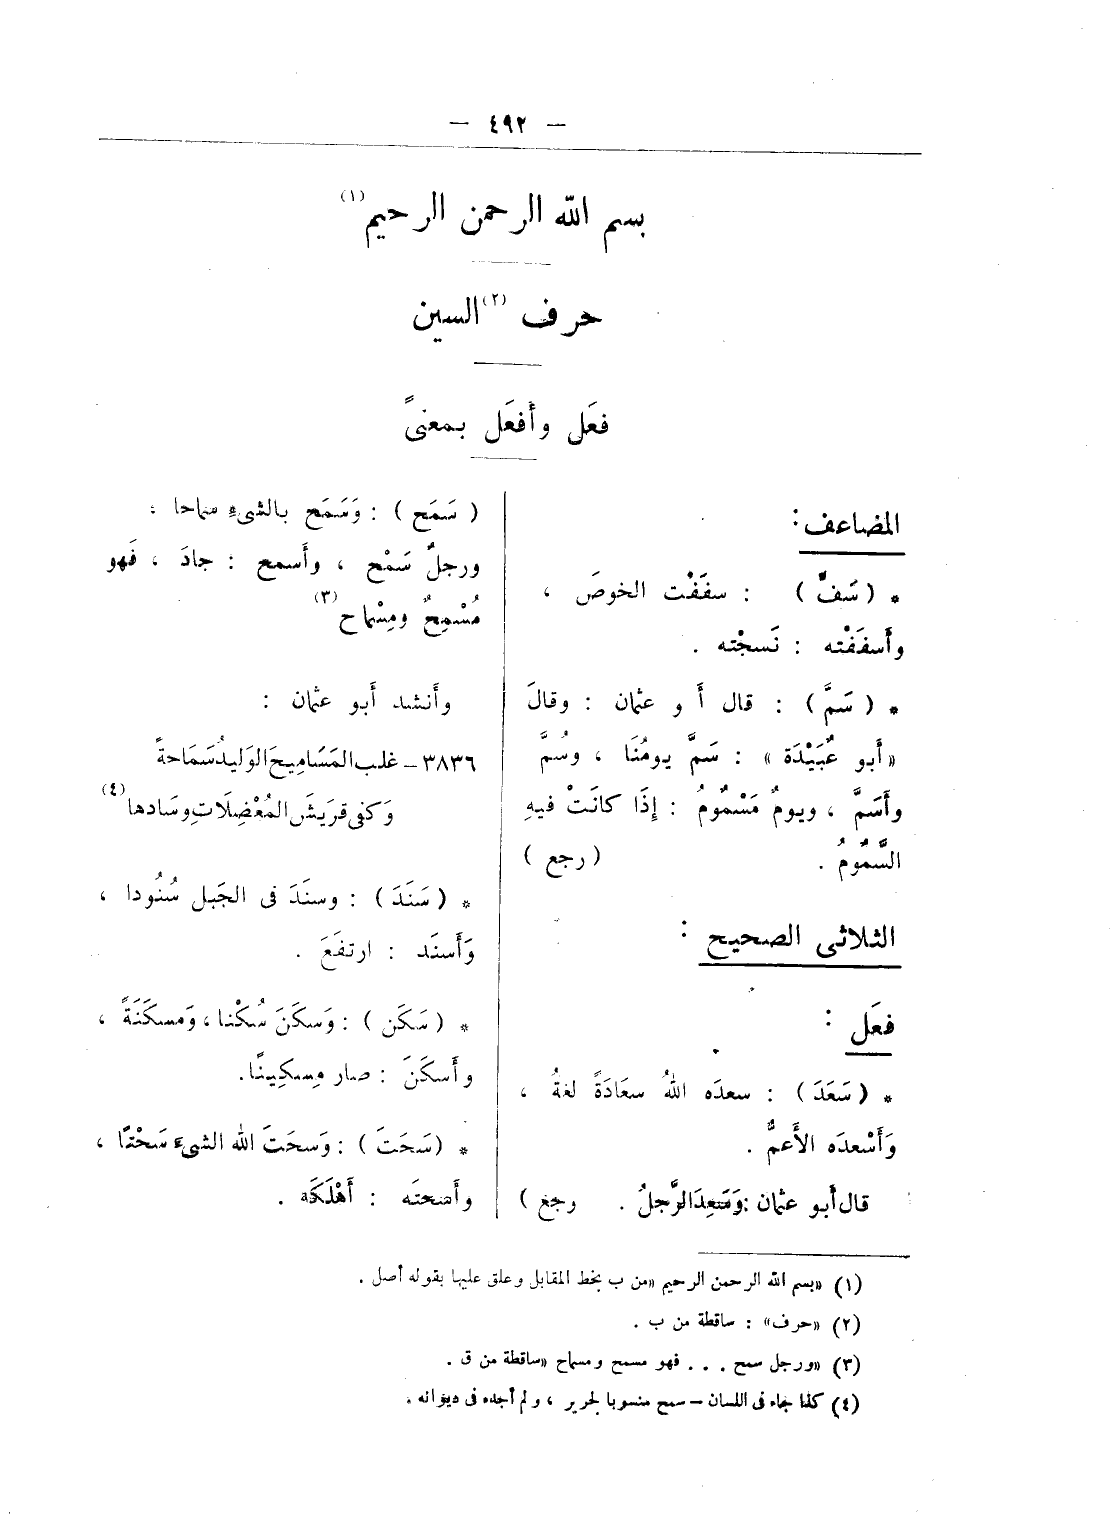 — ٤٩٢ —
بسم الله الرحمن الرحيم (١)
حرف (٢) السين
فعَل وأفعَل بمعنىً
المضاعف :
* ( سَفَّ ) : سفَفْت الخوصَ ،
وأَسفَفْته : نَسجْته .
* ( سَمَّ ) : قال أَ و عثمان : وقالَ
« أَبو عُبَيْدَة » : سَمَّ يومُنَا ، وسُمَّ
وأَسَمَّ ، ويومٌ مَسْمُومٌ : إِذَا كانَتْ فيهِ
السَّمُومُ . ( رجع )
الثلاثى الصحيح :
فعَل :
* ( سَعَدَ ) : سعدَه اللهُ سعَادَةً لغةٌ ،
وَأَسْعدَه الأَعمُّ .
قال أَبو عثمان : وَسَعِدَ الرَّجلُ . رجع )
( سَمَح ) : وَسَمَح بالشىءِ سماحا ،
ورجلٌ سَمْح ، وأَسمح : جادَ ، فَهو
مُسْمِحٌ ومِسْماح (٣)
وأَنشد أَبو عثمان :
٣٨٣٦ – غلب المَسَامِيحَ الوَليدُ سَمَاحةً
وَكفى قرَيشَ المُعْضِلَاتِ وسَادها (٤)
* ( سَنَدَ ) : وسنَدَ فى الجَبل سُنُودا ،
وَأَسنَد : ارتفَعَ .
* ( سَكَن ) : وَسكَنَ سُكْنا ، وَمسكَنَةً ،
وأَسكَنَ : صار مِسكِينًا .
* ( سَحَتَ ) : وَسحَتَ الله الشىءَ سَحْتًا ،
وأَسحتَه : أَهْلَكَه .
(١) «بسم الله الرحمن الرحيم «من ب بخط المقابل وعلق عليها بقوله أصل .
(٢) «حرف» : ساقطة من ب .
(٣) «ورجل سمح . . . فهو مسمح ومسماح «ساقطة من ق .
(٤) كذا جاء فى اللسان – سمح منسوبا لجرير ، ولم أجده فى ديوانه .